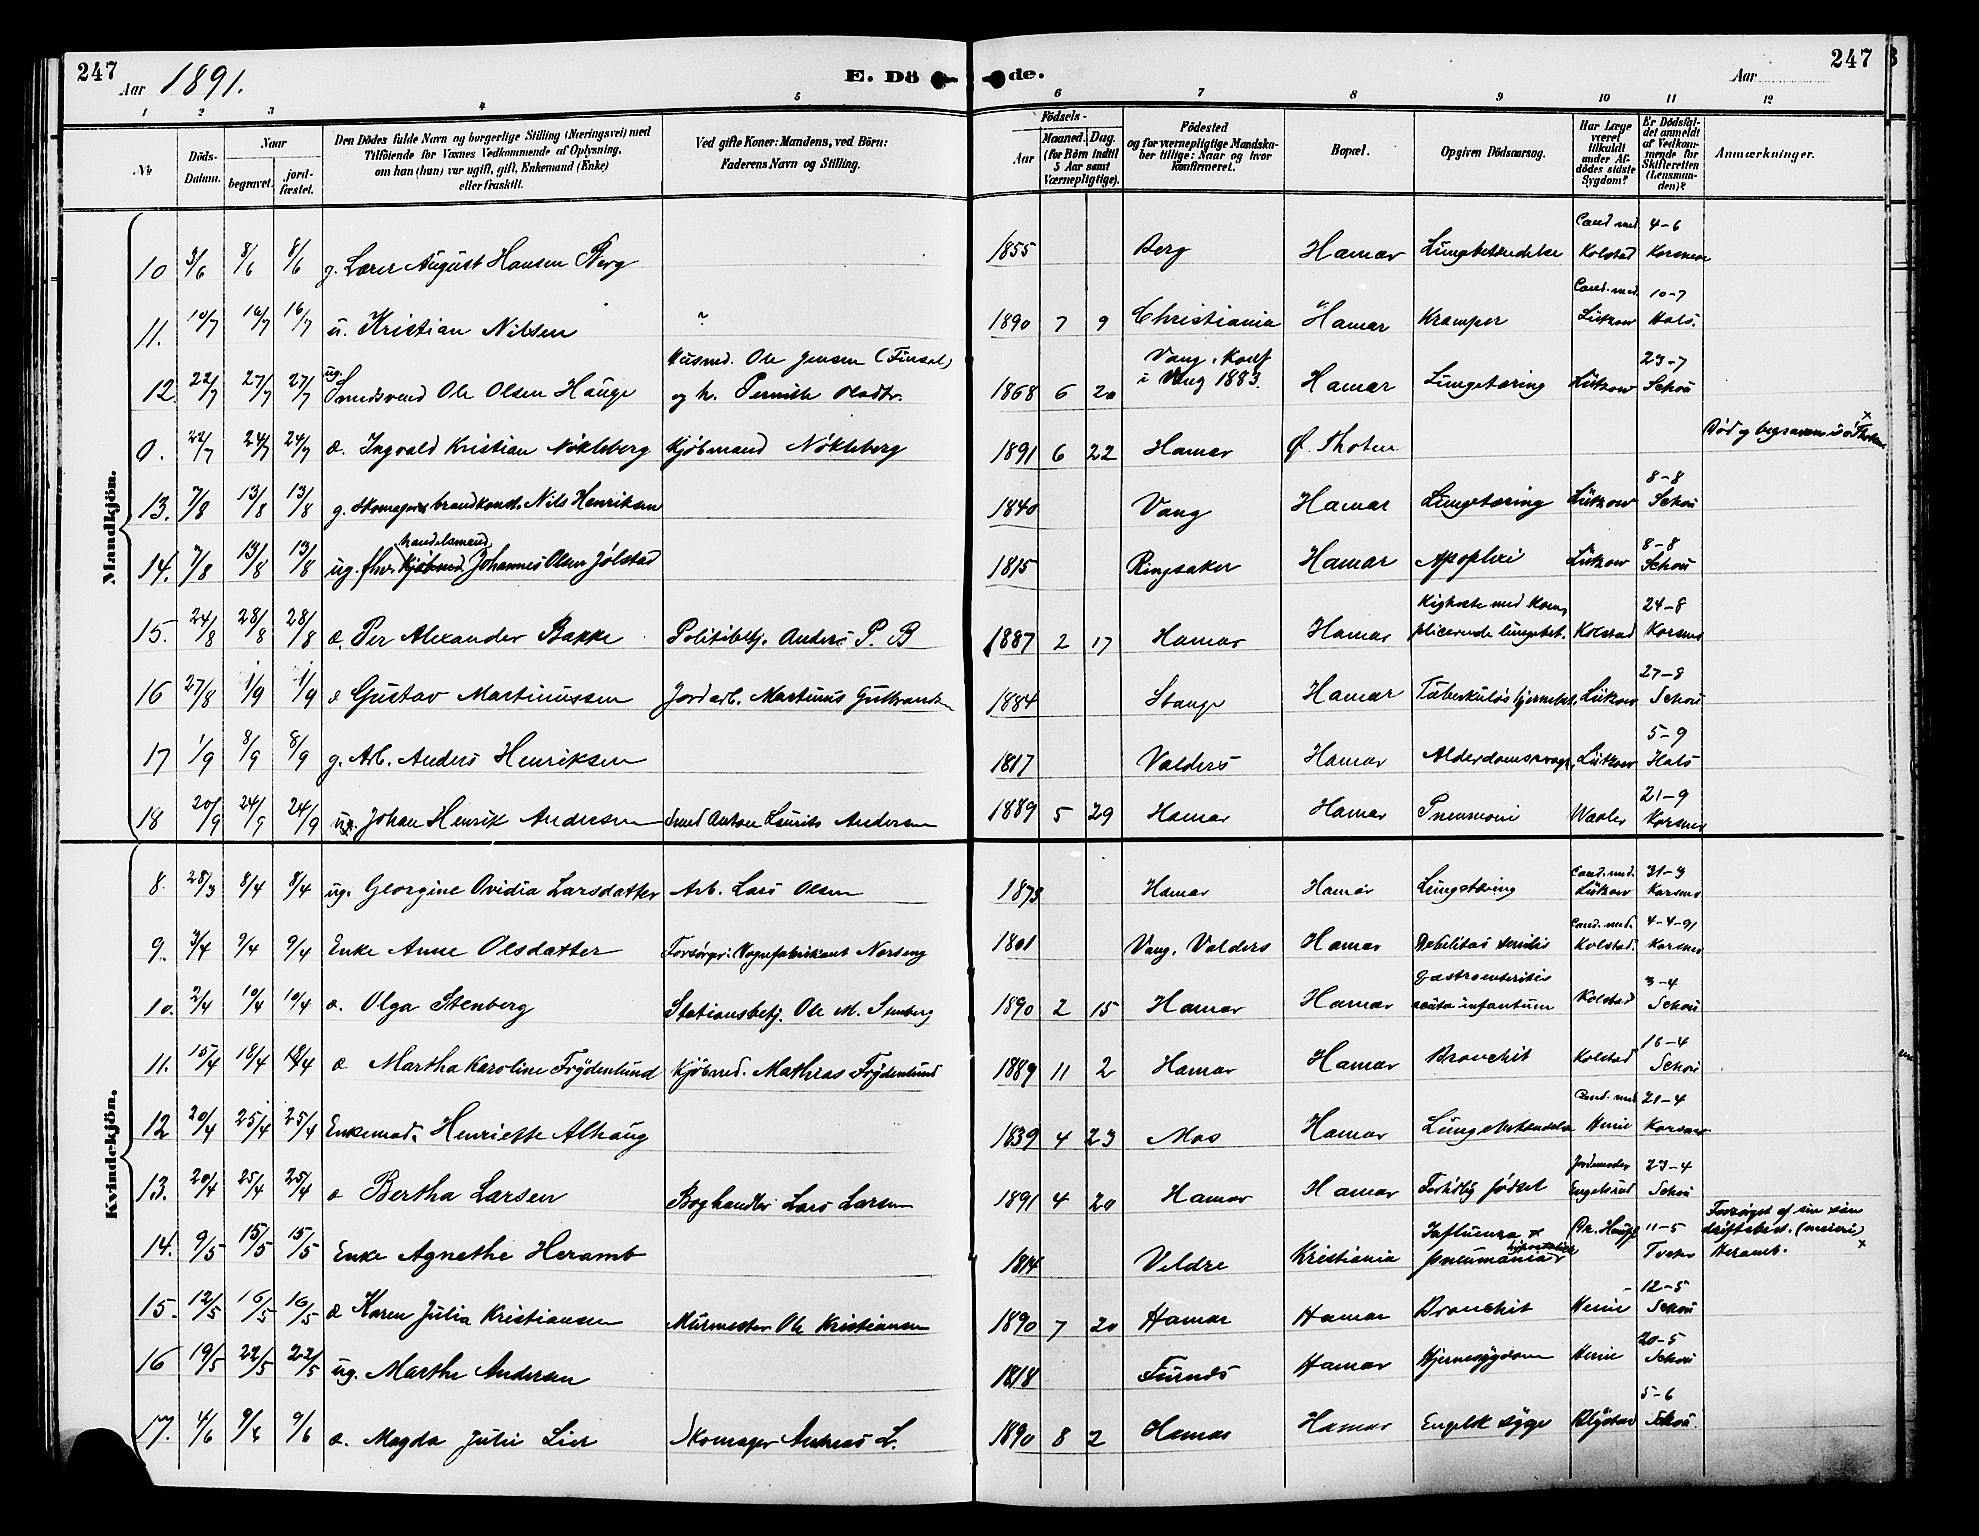 247 Aar 1891. E. Dö de. Aar 247
1 2 3 4 5 6 7 8 9 10 11 12
No. Döds-Datum. Naar begravet. jordfæstet. Den Dödes fulde Navn og borgerlige Stilling (Næringsvei) med Tilföiende for Voxnes Vedkommende af Oplysning, om han (hun) var ugift, gift, Enkemand (Enke) eller fraskilt. Ved gifte Koner: Mandens, ved Börn: Faderens Navn og Stilling. Födsels- Aar Maaned. Dag. (for Börn indtil 5 Aar samt Værnepligtige). Födested og for værnepligtige Mandskaber tillige: Naar og hvor Konfirmeret. Bopæl. Opgiven Dödsaarsag. Har Læge været tilkaldt under Afdödes sidste Sygdom? Er Dödsfaldet anmeldt af Vedkommende for Skifteretten (Lensmanden)? Anmærkninger.
Mandkjön.
10 3/6 8/6 8/6 g. Lærer August Hansen Berg 1855 Berg Hamar Lungebetændelse Cand. med. Kolstad 4-6 Korsmo
11. 10/7 16/7 16/7 u. Kristian Nilsen ? 1890 7 9 Christiania Hamar Kramper Cand. med. Lützow 10-7 Hals.
12 22/7 27/7 27/7 ug. Smedsvend Ole Olsen Hauge Husmd. Ole Jensen (Finsal) og h. Pernille Olsdtr. 1868 6 20 Vang, Konf i Vang 1883. Hamar Lungetæring Lützow 23-7 Schou
0. 22/7 24/7 24/7 æ. Ingvald Kristian Nökleberg Kjöbmand Nökleberg 1891 6 22 Hamar Ø. Thoten Död og begraven i Ø. Thoten x
13. 7/8 13/8 13/8 g. Skomager Nils Henriksen 1840 Vang Hamar Lungetæring Lützow 8-8 Schou
14. 7/8 13/8 13/8 ug. fhv. Kjöbmd. handelsmand Johannes Olsen Jølstad 1815 Ringsaker Hamar Apoplexi Lützow 8-8 Schou
15. 24/8 28/8 28/8 æ. Per Alexander Bakke Politibetj. Anders P. B 1887 2 17 Hamar Hamar Kighoste med komplicerende lungebet. Kolstad 24-8 Korsmo
16 27/8 1/9 1/9 æ Gustav Martinussen Jordarb. Martinus Gulbrandsen 1884 Stange Hamar Tuberkuløs hjernebet. Lützow 27-8 Schou
17 1/9 8/9 8/9 g. Arb. Anders Henriksen 1817 Valders Hamar Alderdomssvagh. Lützow 5-9 Hals
18 20/9 24/9 24/9 Johan Henrik Andersen Smed Anton Laurits Andersen 1889 5 29 Hamar Hamar Pneumoni Waaler 21-9 Korsmo
Kvindekjön.
8. 28/3 8/4 8/4 ug. Georgine Ovidia Larsdatter Arb. Lars Olsen 1873 Hamar Hamar Lungetæring Cand. med. Lützow 31-3 Korsmo
9. 3/4 9/4 9/4 Enke Anne Olsdatter Forsörger: Vognfabrikant Norseng 1801 Vang, Valders Hamar Debilitas senilis Cand. med. Kolstad. 4-4-91 Korsmo
10. 2/4 10/4 10/4 æ. Olga Stenberg Stationsbetj. Ole M. Stenberg 1890 2 15 Hamar Hamar Gastroenteritis acuta infantum Kolstad 3-4 Schou
11. 15/4 18/4 18/4 æ Martha Karoline Frydenlund Kjöbmd. Mathias Frydenlund 1889 11 2 Hamar Hamar Bronchit Kolstad 16-4 Schou
12 20/4 25/4 25/4 Enkemad. Henriette Alhaug 1839 4 23 Mos Hamar Lungebetændelse Cand. med Heiie 21-4 Korsmo
13. 20/4 25/4 25/4 æ Bertha Larsen Boghandler Lars Larsen 1891 4 20 Hamar Hamar Fortidlig födsel Jordemoder Engelsrud 23-4 Schou
14. 9/5 15/5 15/5 Enke Agnethe Heramb 1814 Veldre Kristiania Influenza x hypostatisk pneumonia Dr. 11-5 Forsörget af sin sön driftsbest. (meieri) Heramb. x
15. 12/5 16/5 16/5 æ Karen Julia Kristiansen Murmester Ole Kristiansen 1890 7 20 Hamar Hamar Bronchit Heiie 12-5 Schou
16 19/5 22/5 22/5 ug. Marthe Andersen 1818 Furnes Hamar Hjernesygdom Heiie 20-5 Schou
17. 4/6 9/6 9/6 æ. Magda Julie Lier Skomager Andreas L. 1890 8 2 Hamar Hamar Engelsk syge 5-6 Schou.